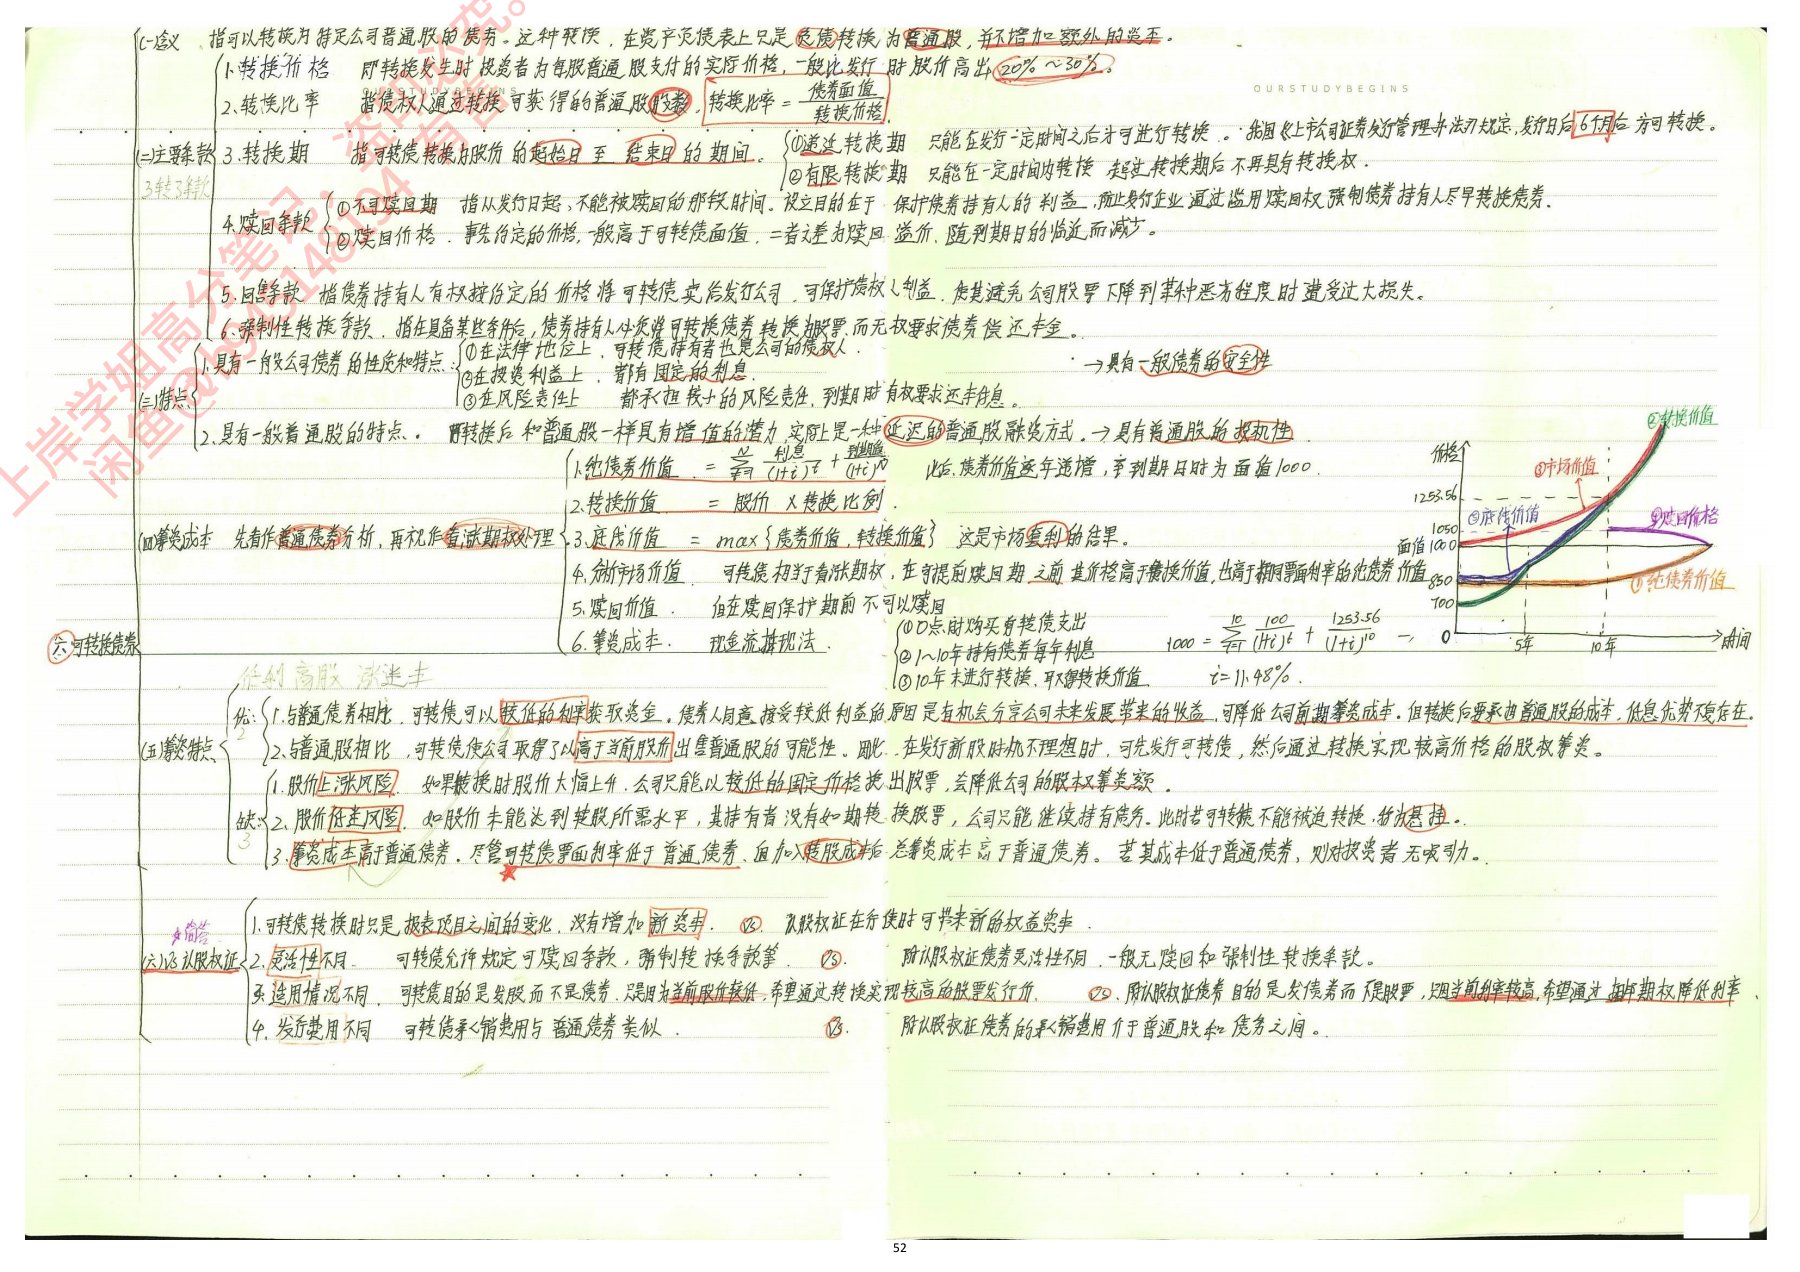 六、可转换债券
(一)含义 指可以转换为特定公司普通股的债券。这种转换，在资产负债表上只是负债转换为普通股，并不增加额外的资本。
OURSTUDYBEGINS
OURSTUDYBEGINS
(二)主要条款
3转3条款
1.转换价格 即转换发生时投资者为每股普通股支付的实际价格，一般比发行时股价高出20%～30%。
2.转换比率 指债权人通过转换可获得的普通股股数，转换比率=债券面值/转换价格
3.转换期 指可转债转换为股份的起始日至结束日的期间。
①递延转换期 只能在发行一定时间之后才可进行转换。我国《上市公司证券发行管理办法》规定,发行日后6个月后方可转换。
②有限转换期 只能在一定时间内转换 超过转换期后不再具有转换权.
4.赎回条款
①不可赎回期 指从发行日起、不能被赎回的那段时间。设立目的在于 保护债券持有人的利益,防止发行企业通过滥用赎回权,强制债券持有人尽早转换债券.
②赎回价格.事先约定的价格,一般高于可转债面值,二者之差为赎回溢价.随到期日的临近而减少。
5.回售条款 指债券持有人有权按约定的价格将可转债卖给发行公司,可保护债权人利益,使其避免公司股票下降到某种恶劣程度时遭受过大损失。
6.强制性转换条款.指在具备某些条件后,债券持有人必须将可转换债券转换为股票,而无权要求债券偿还本金。
(三)特点
1.具有一般公司债券的性质和特点.
①在法律地位上,可转债持有者也是公司的债权人.
②在投资利益上,都有固定的利息.
③在风险责任上 都承担较小的风险责任,到期时有权要求还本付息。
→具有一般债券的安全性
2.具有一般普通股的特点。 即转换后和普通股一样具有增值的潜力,实际上是一种延迟的普通股融资方式.→具有普通股的投机性.
(四)筹资成本 先看作普通债券分析,再视作看涨期权处理
1.纯债券价值 = Σ(t=1,N) 利息/(1+i)^t + 到期值/(1+i)^N 此后.债券价值逐年递增,至到期日时为面值1000.
2.转换价值 = 股价×转换比例.
3.底线价值 = max{债券价值,转换价值} 这是市场套利的结果。
4.分析市场价值 可转债相当于看涨期权,在可提前赎回期之前 其价格高于转换价值,也高于相同票面利率的纯债券价值
5.赎回价值. 但在赎回保护期前不可以赎回
6.筹资成本. 现金流折现法.
①0点时购买可转债支出
②1～10年持有债券每年利息
③10年末进行转换,取得转换价值
1000 = Σ(t=1,10) 100/(1+i)^t + 1253.56/(1+i)^10
i=11.48%.
价格
1253.56
1050
面值1000
850
700
0
5年
10年
时间
②转换价值
⑤市场价值
③底线价值
④赎回价格
①纯债券价值
低利 高股 涨迷率
(五)筹资特点
优:2
1.与普通债券相比,可转债可以较低的利率获取资金。债券人同意接受较低利益的原因是有机会分享公司未来发展带来的收益,可降低公司前期筹资成本。但转换后要承担普通股的成本,低息优势不复存在。
2.与普通股相比,可转债使公司取得了以高于当前股价出售普通股的可能性。因此.在发行新股时机不理想时,可先发行可转债,然后通过转换实现较高价格的股权筹资。
缺:3
1.股价上涨风险. 如果转换时股价大幅上升.公司只能以较低的固定价格换出股票,会降低公司的股本权筹资额.
2.股价低迷风险. 如股价未能达到转股所需水平,其持有者没有如期转换股票,公司只能继续持有债务.此时若可转债不能被迫转换,称为悬挂。
3.筹资成本高于普通债券.尽管可转债票面利率低于普通债券,但加入转股成本后总筹资成本高于普通债券。若其成本低于普通债券,则对投资者无吸引力。
☆简答
(六)VS认股权证
1.可转债转换时只是报表项目之间的变化,没有增加新资本. VS 认股权证在行使时可带来新的权益资本.
2.灵活性不同. 可转债允许规定可赎回条款,强制转换条款等. VS. 附认股权证债券灵活性不同.一般无赎回和强制性转换条款。
3.适用情况不同. 可转债目的是发股而不是债券.只是因为当前股价较低,希望通过转换实现较高的股票发行价. VS.附认股权证债券目的是发债券而不是股票,只因当前利率较高,希望通过捆绑期权降低利率.
4.发行费用不同 可转债承销费用与普通债券类似. VS. 附认股权证债券的承销费用介于普通股和债务之间。
上岸学姐高分笔记，盗印必究。
52